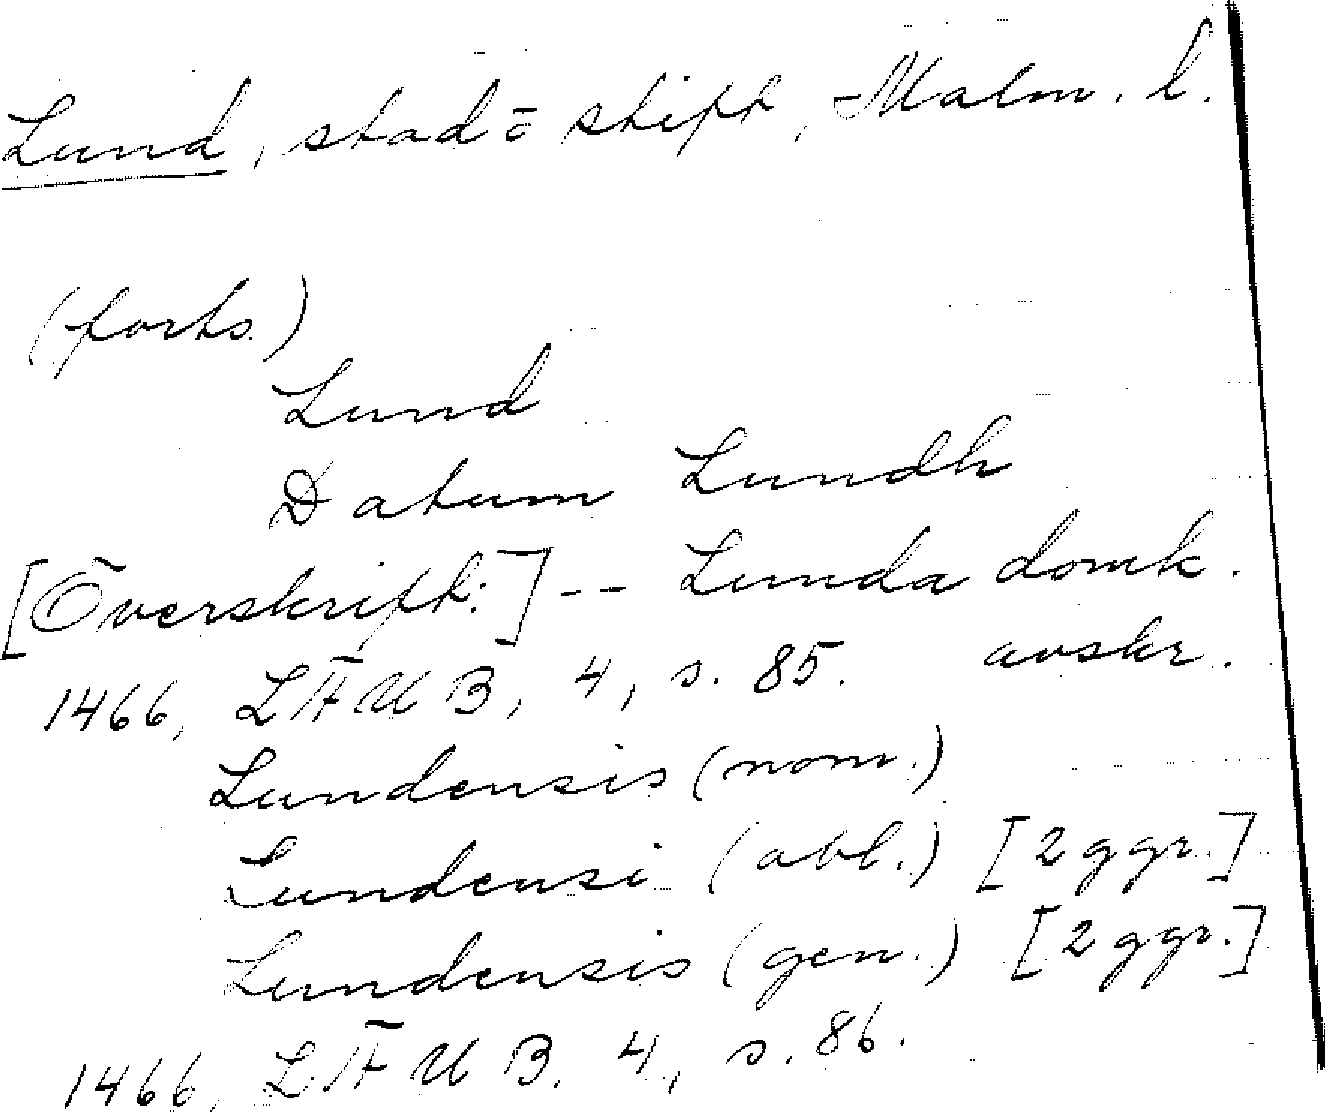 Lund, stad o stift, Malm. l.
(forts.)
Lund
Datum Lundh
[Överskrift:] -- Lunda domk.
avskr.
1466, LÄUB, 4, s. 85.
Lundensis (nom.)
Lundensi (abl.) [2 ggr.]
Lundensis (gen.) [2 ggr.]
1466, LÄUB, 4, s. 86.